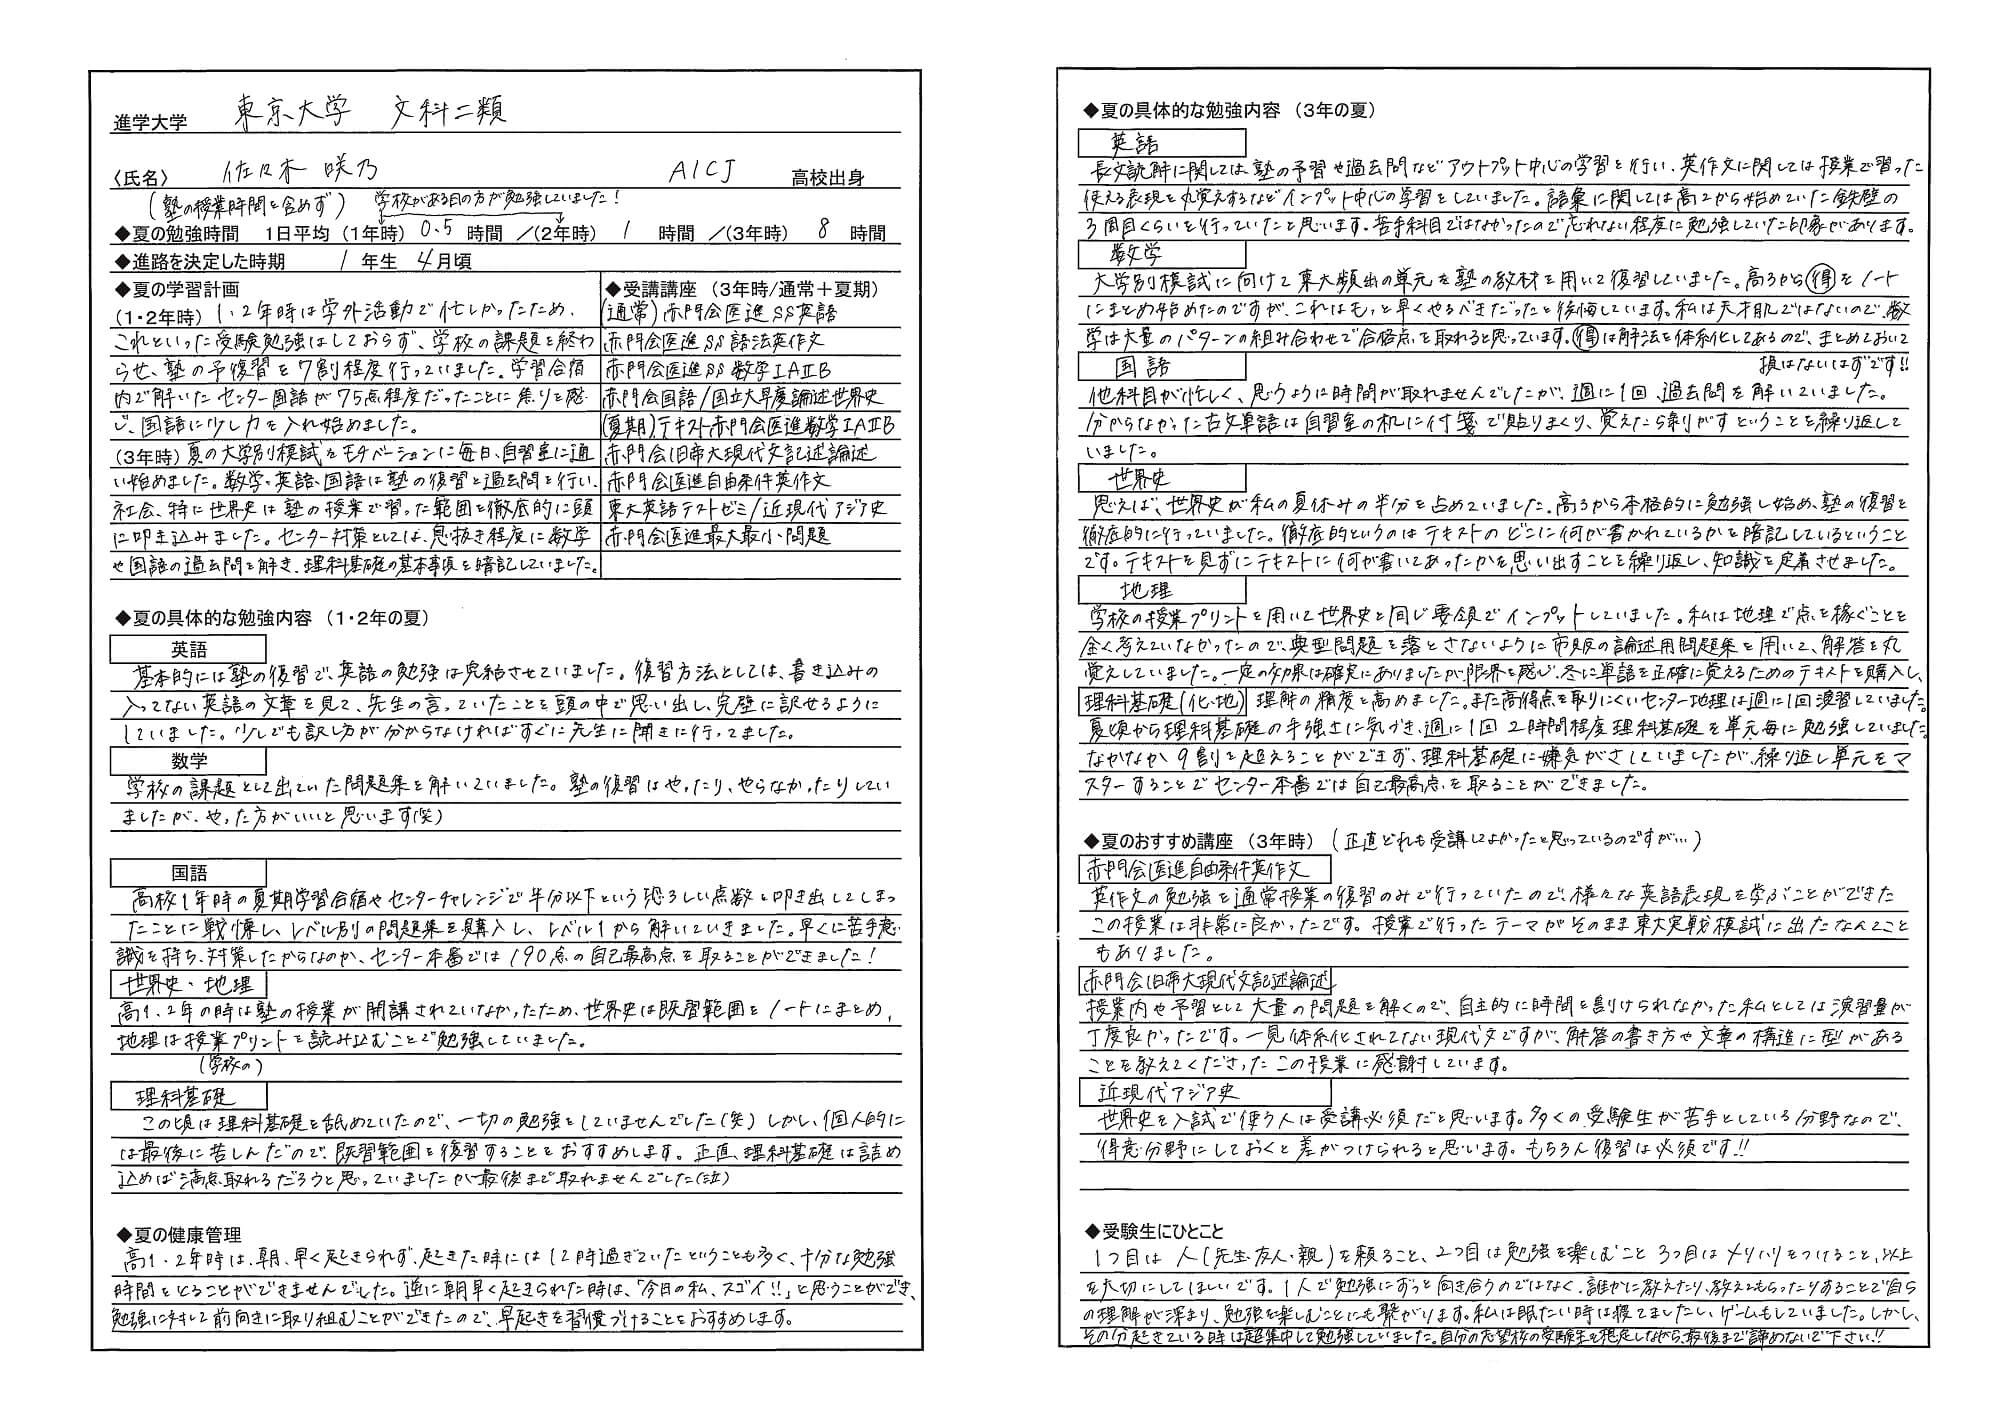 進学大学 東京大学 文科二類
〈氏名〉 佐々木 咲乃 AICJ 高校出身
(塾の授業時間を含めず) 学校がある日の方が勉強していました!
◆夏の勉強時間 1日平均(1年時) 0.5 時間 /(2年時) 1 時間 /(3年時) 8 時間
◆進路を決定した時期 1 年生 4 月頃
◆夏の学習計画
(1・2年時) 1・2年時は学外活動で忙しかったため、
これといった受験勉強はしておらず、学校の課題を終わ
らせ、塾の予復習を7割程度行っていました。学習合宿
内で解いたセンター国語が75点程度だったことに焦りを感
じ、国語に少し力を入れ始めました。
(3年時) 夏の大学別模試をモチベーションに毎日、自習室に通
い始めました。数学、英語、国語は塾の復習と過去問を行い、
社会、特に世界史は塾の授業で習った範囲を徹底的に頭
に叩き込みました。センター対策としては、息抜き程度に数学
や国語の過去問を解き、理科基礎の基本事項を暗記していました。
◆受講講座 (3年時/通常+夏期)
(通常)赤門会医進SS英語
赤門会医進SS語法英作文
赤門会医進SS数学ⅠAⅡB
赤門会国語/国立大早慶論述世界史
(夏期)テキスト赤門会医進数学ⅠAⅡB
赤門会旧帝大現代文記述論述
赤門会医進自由条件英作文
東大英語テストゼミ/近現代アジア史
赤門会医進最大最小問題
◆夏の具体的な勉強内容 (1・2年の夏)
英語
基本的には塾の復習で、英語の勉強は完結させていました。復習方法としては、書き込みの
入ってない英語の文章を見て、先生の言っていたことを頭の中で思い出し、完璧に訳せるように
していました。少しでも訳し方が分からなければすぐに先生に聞きに行ってました。
数学
学校の課題として出ていた問題集を解いていました。塾の復習はやったり、やらなかったりしてい
ましたが、やった方がいいと思います(笑)
国語
高校1年時の夏期学習合宿やセンターチャレンジで半分以下という恐ろしい点数を叩き出してしまっ
たことに戦慄し、レベル別の問題集を購入し、レベル1から解いていきました。早くに苦手意
識を持ち、対策したからなのか、センター本番では190点の自己最高点を取ることができました!
世界史・地理
高1、2年の時は塾の授業が開講されていなかったため、世界史は既習範囲をノートにまとめ、
地理は授業プリントを読み込むことで勉強していました。
(学校の)
理科基礎
この頃は理科基礎を舐めていたので、一切の勉強をしていませんでした(笑)しかし、個人的に
は最後に苦しんだので、既習範囲を復習することをおすすめします。正直、理科基礎は詰め
込めば満点取れるだろうと思っていましたが最後まで取れませんでした(泣)
◆夏の健康管理
高1・2年時は、朝、早く起きられず、起きた時には12時過ぎていたということも多く、十分な勉強
時間をとることができませんでした。逆に朝早く起きられた時は、「今日の私、スゴイ!!」と思うことができ、
勉強に対して前向きに取り組むことができたので、早起きを習慣づけることをおすすめします。
◆夏の具体的な勉強内容 (3年の夏)
英語
長文読解に関しては塾の予習や過去問などアウトプット中心の学習を行い、英作文に関しては授業で習った
使える表現を丸覚えするなどインプット中心の学習をしていました。語彙に関しては高2から始めていた鉄壁の
3周目くらいを行っていたと思います。苦手科目ではなかったので忘れない程度に勉強していた印象があります。
数学
大学別模試に向けて東大頻出の単元を塾の教材を用いて復習していました。高3から得をノート
にまとめ始めたのですが、これはもっと早くやるべきだったと後悔しています。私は天才肌ではないので、数
学は大量のパターンの組み合わせで合格点を取れると思っています。得は解法を体系化してあるので、まとめておいて
損はないはずです!!
国語
他科目が忙しく、思うように時間が取れませんでしたが、週に1回、過去問を解いていました。
分からなかった古文単語は自習室の机に付箋で貼りまくり、覚えたら剥がすということを繰り返して
いました。
世界史
思えば、世界史が私の夏休みの半分を占めていました。高3から本格的に勉強し始め、塾の復習を
徹底的に行っていました。徹底的というのはテキストのどこに何が書かれているかを暗記しているということ
です。テキストを見ずにテキストに何が書いてあったかを思い出すことを繰り返し、知識を定着させました。
地理
学校の授業プリントを用いて世界史と同じ要領でインプットしていました。私は地理で点を稼ぐことを
全く考えていなかったので、典型問題を落とさないように市販の論述用問題集を用いて、解答を丸
覚えしていました。一定の効果は確実にありましたが限界を感じ、冬に単語を正確に覚えるためのテキストを購入し、
理科基礎(化・地) 理解の精度を高めました。また高得点を取りにくいセンター地理は週に1回演習していました。
夏頃から理科基礎の手強さに気づき、週に1回2時間程度理科基礎を単元毎に勉強していました。
なかなか9割を超えることができず、理科基礎に嫌気がさしていましたが、繰り返し単元をマ
スターすることでセンター本番では自己最高点を取ることができました。
◆夏のおすすめ講座 (3年時) (正直どれも受講してよかったと思っているのですが…)
赤門会医進自由条件英作文
英作文の勉強を通常授業の復習のみで行っていたので、様々な英語表現を学ぶことができた
この授業は非常に良かったです。授業で行ったテーマがそのまま東大実戦模試に出たなんてこと
もありました。
赤門会旧帝大現代文記述論述
授業内や予習として大量の問題を解くので、自主的に時間を割けられなかった私としては演習量が
丁度良かったです。一見体系化されてない現代文ですが、解答の書き方や文章の構造に型がある
ことを教えてくださったこの授業に感謝しています。
近現代アジア史
世界史を入試で使う人は受講必須だと思います。多くの受験生が苦手としている分野なので、
得意分野にしておくと差がつけられると思います。もちろん復習は必須です!!
◆受験生にひとこと
1つ目は人(先生・友人・親)を頼ること、2つ目は勉強を楽しむこと 3つ目はメリハリをつけること、以上
を大切にしてほしいです。1人で勉強にずっと向き合うのではなく、誰かに教えたり、教えてもらったりすることで自ら
の理解が深まり、勉強を楽しむことにも繋がります。私は眠たい時は寝てましたし、ゲームもしていました。しかし、
その分起きている時は超集中して勉強していました。自分の志望校の受験生を想定しながら、最後まで諦めないで下さい!!